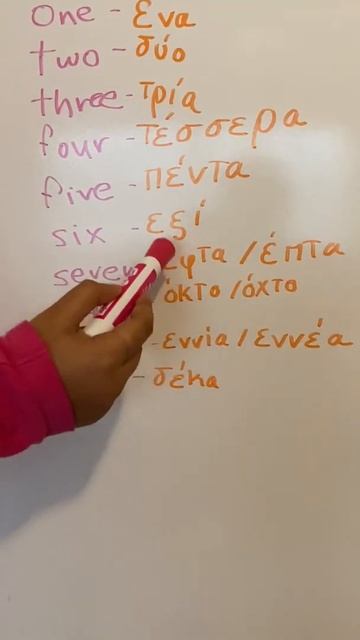 one - ένα
two - δύο
three - τρία
four - τέσσερα
five - πέντα
six - εξί
seven έφτα / έπτα
όκτο / όχτο
- εννία / εννέα
- δέκα